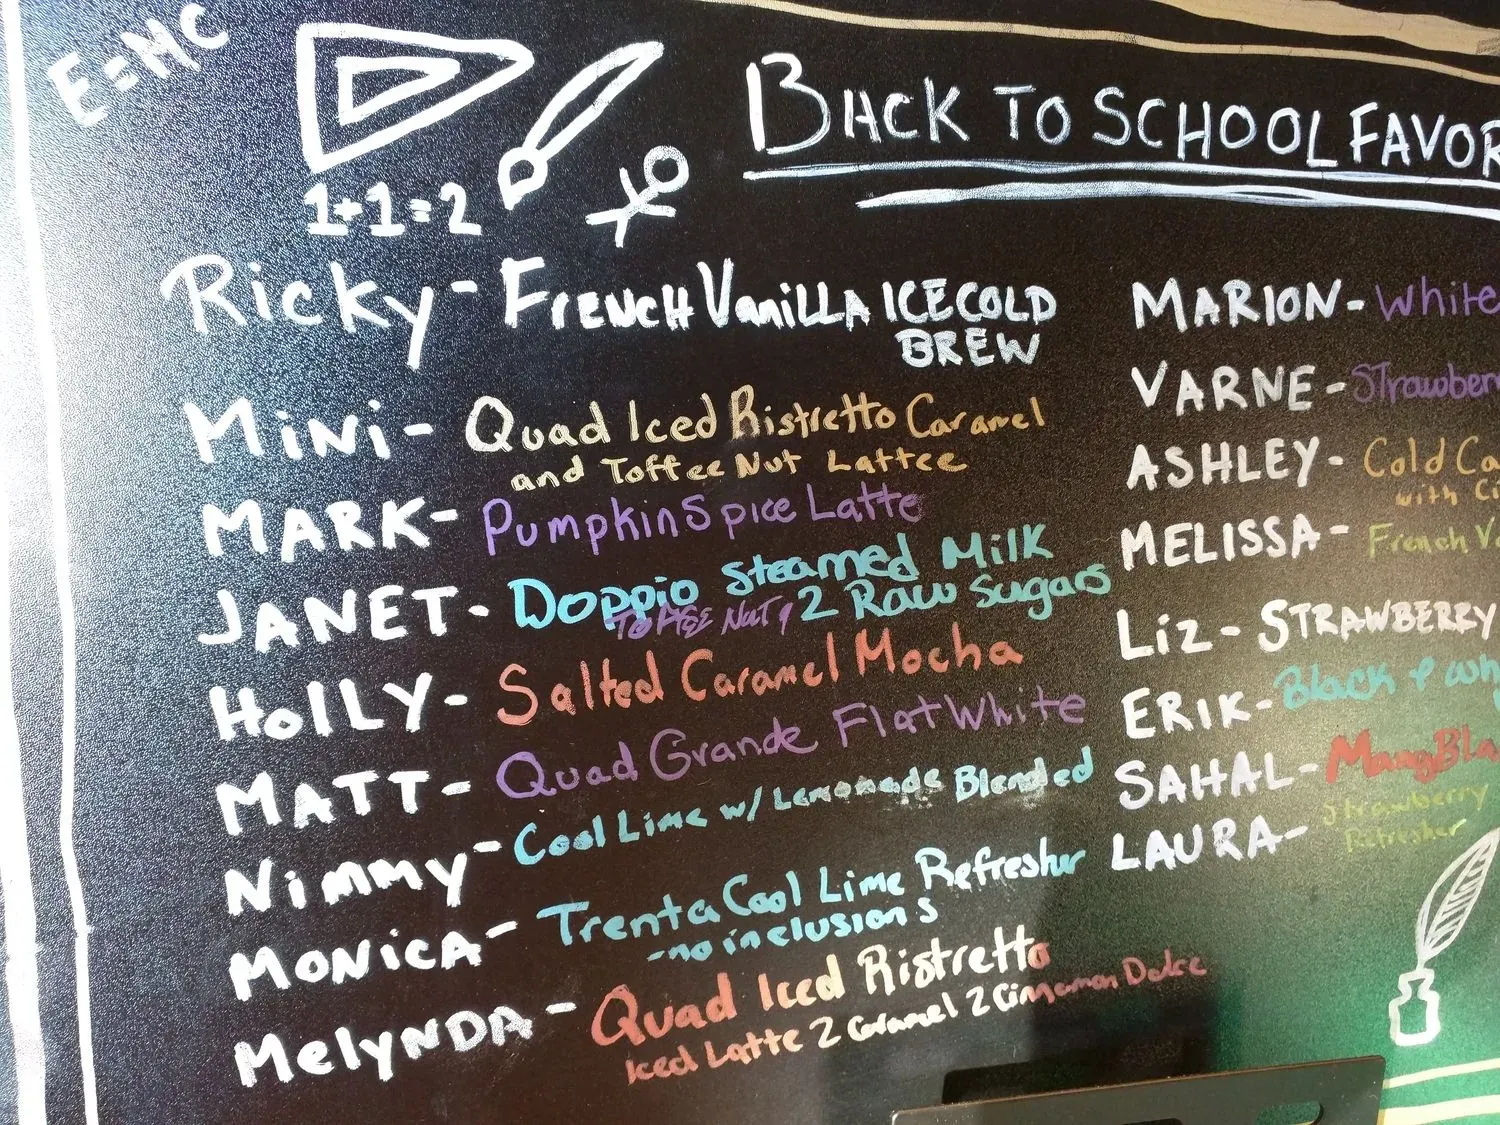 E=MC
1+1=2
BACK TO SCHOOL FAVOR
Ricky - FRENCH VaniLLA ICE COLD
BREW
MiNi - Quad Iced Ristretto Caramel
and Toffee Nut Lattee
MARK - Pumpkin Spice Latte
JANET - Doppio Steamed Milk
Toffee Nut, 2 Raw Sugars
HOLLY - Salted Caramel Mocha
MATT - Quad Grande Flat White
Nimmy - Cool Lime w/ Lemonade Blended
MONicA - Trenta Cool Lime Refresher
- no inclusions
MelyNDA - Quad Iced Ristretto
Iced Latte 2 Caramel 2 Cinnamon Dolce
MARION - White
VARNE - Strawber
ASHLEY - Cold Ca
with Ci
MELISSA - French Va
Liz - STRAWBERRY
ERIK - Black & Whi
SAHAL - Mang Bla
LAURA - Strawberry
Refresher